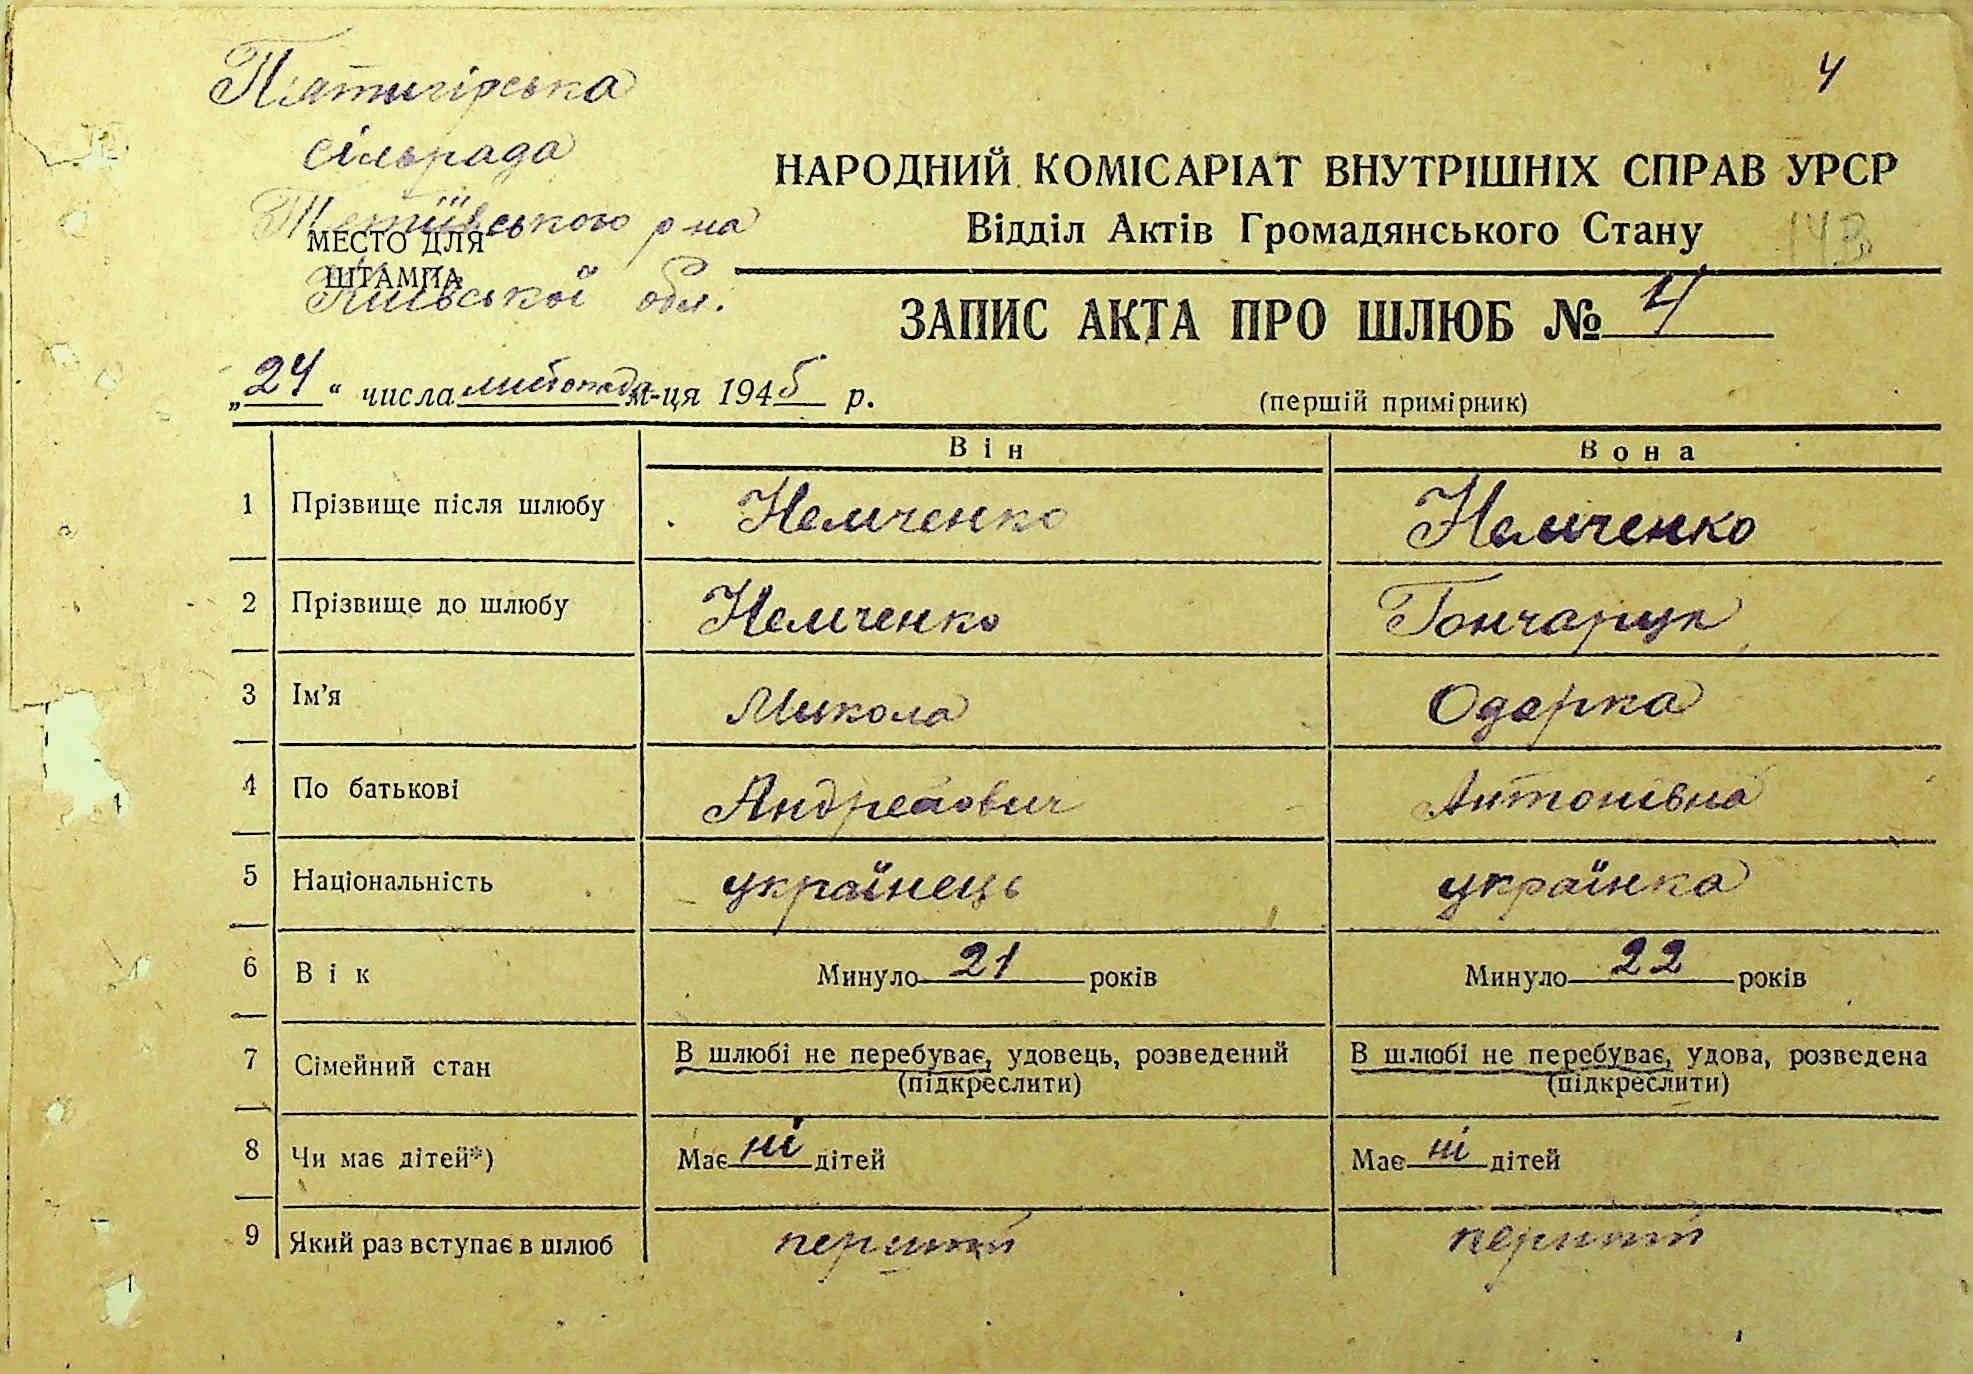 4
Пятигірська
сільрада
Тетіївського р-на
Київської обл.
МЕСТО ДЛЯ
ШТАМПА
НАРОДНИЙ КОМІСАРІАТ ВНУТРІШНІХ СПРАВ УРСР
Відділ Актів Громадянського Стану
143
ЗАПИС АКТА ПРО ШЛЮБ № 4
„24“ числа листопада м-ця 1945 р.
(першій примірник)
Він Вона
1 Прізвище після шлюбу Немченко Немченко
2 Прізвище до шлюбу Немченко Гончарук
3 Ім'я Микола Одарка
4 По батькові Андреєович Антонівна
5 Національність українець українка
6 Вік Минуло 21 років Минуло 22 років
7 Сімейний стан В шлюбі не перебуває, удовець, розведений В шлюбі не перебуває, удова, розведена
(підкреслити) (підкреслити)
8 Чи має дітей*) Має ні дітей Має ні дітей
9 Який раз вступає в шлюб перший перший